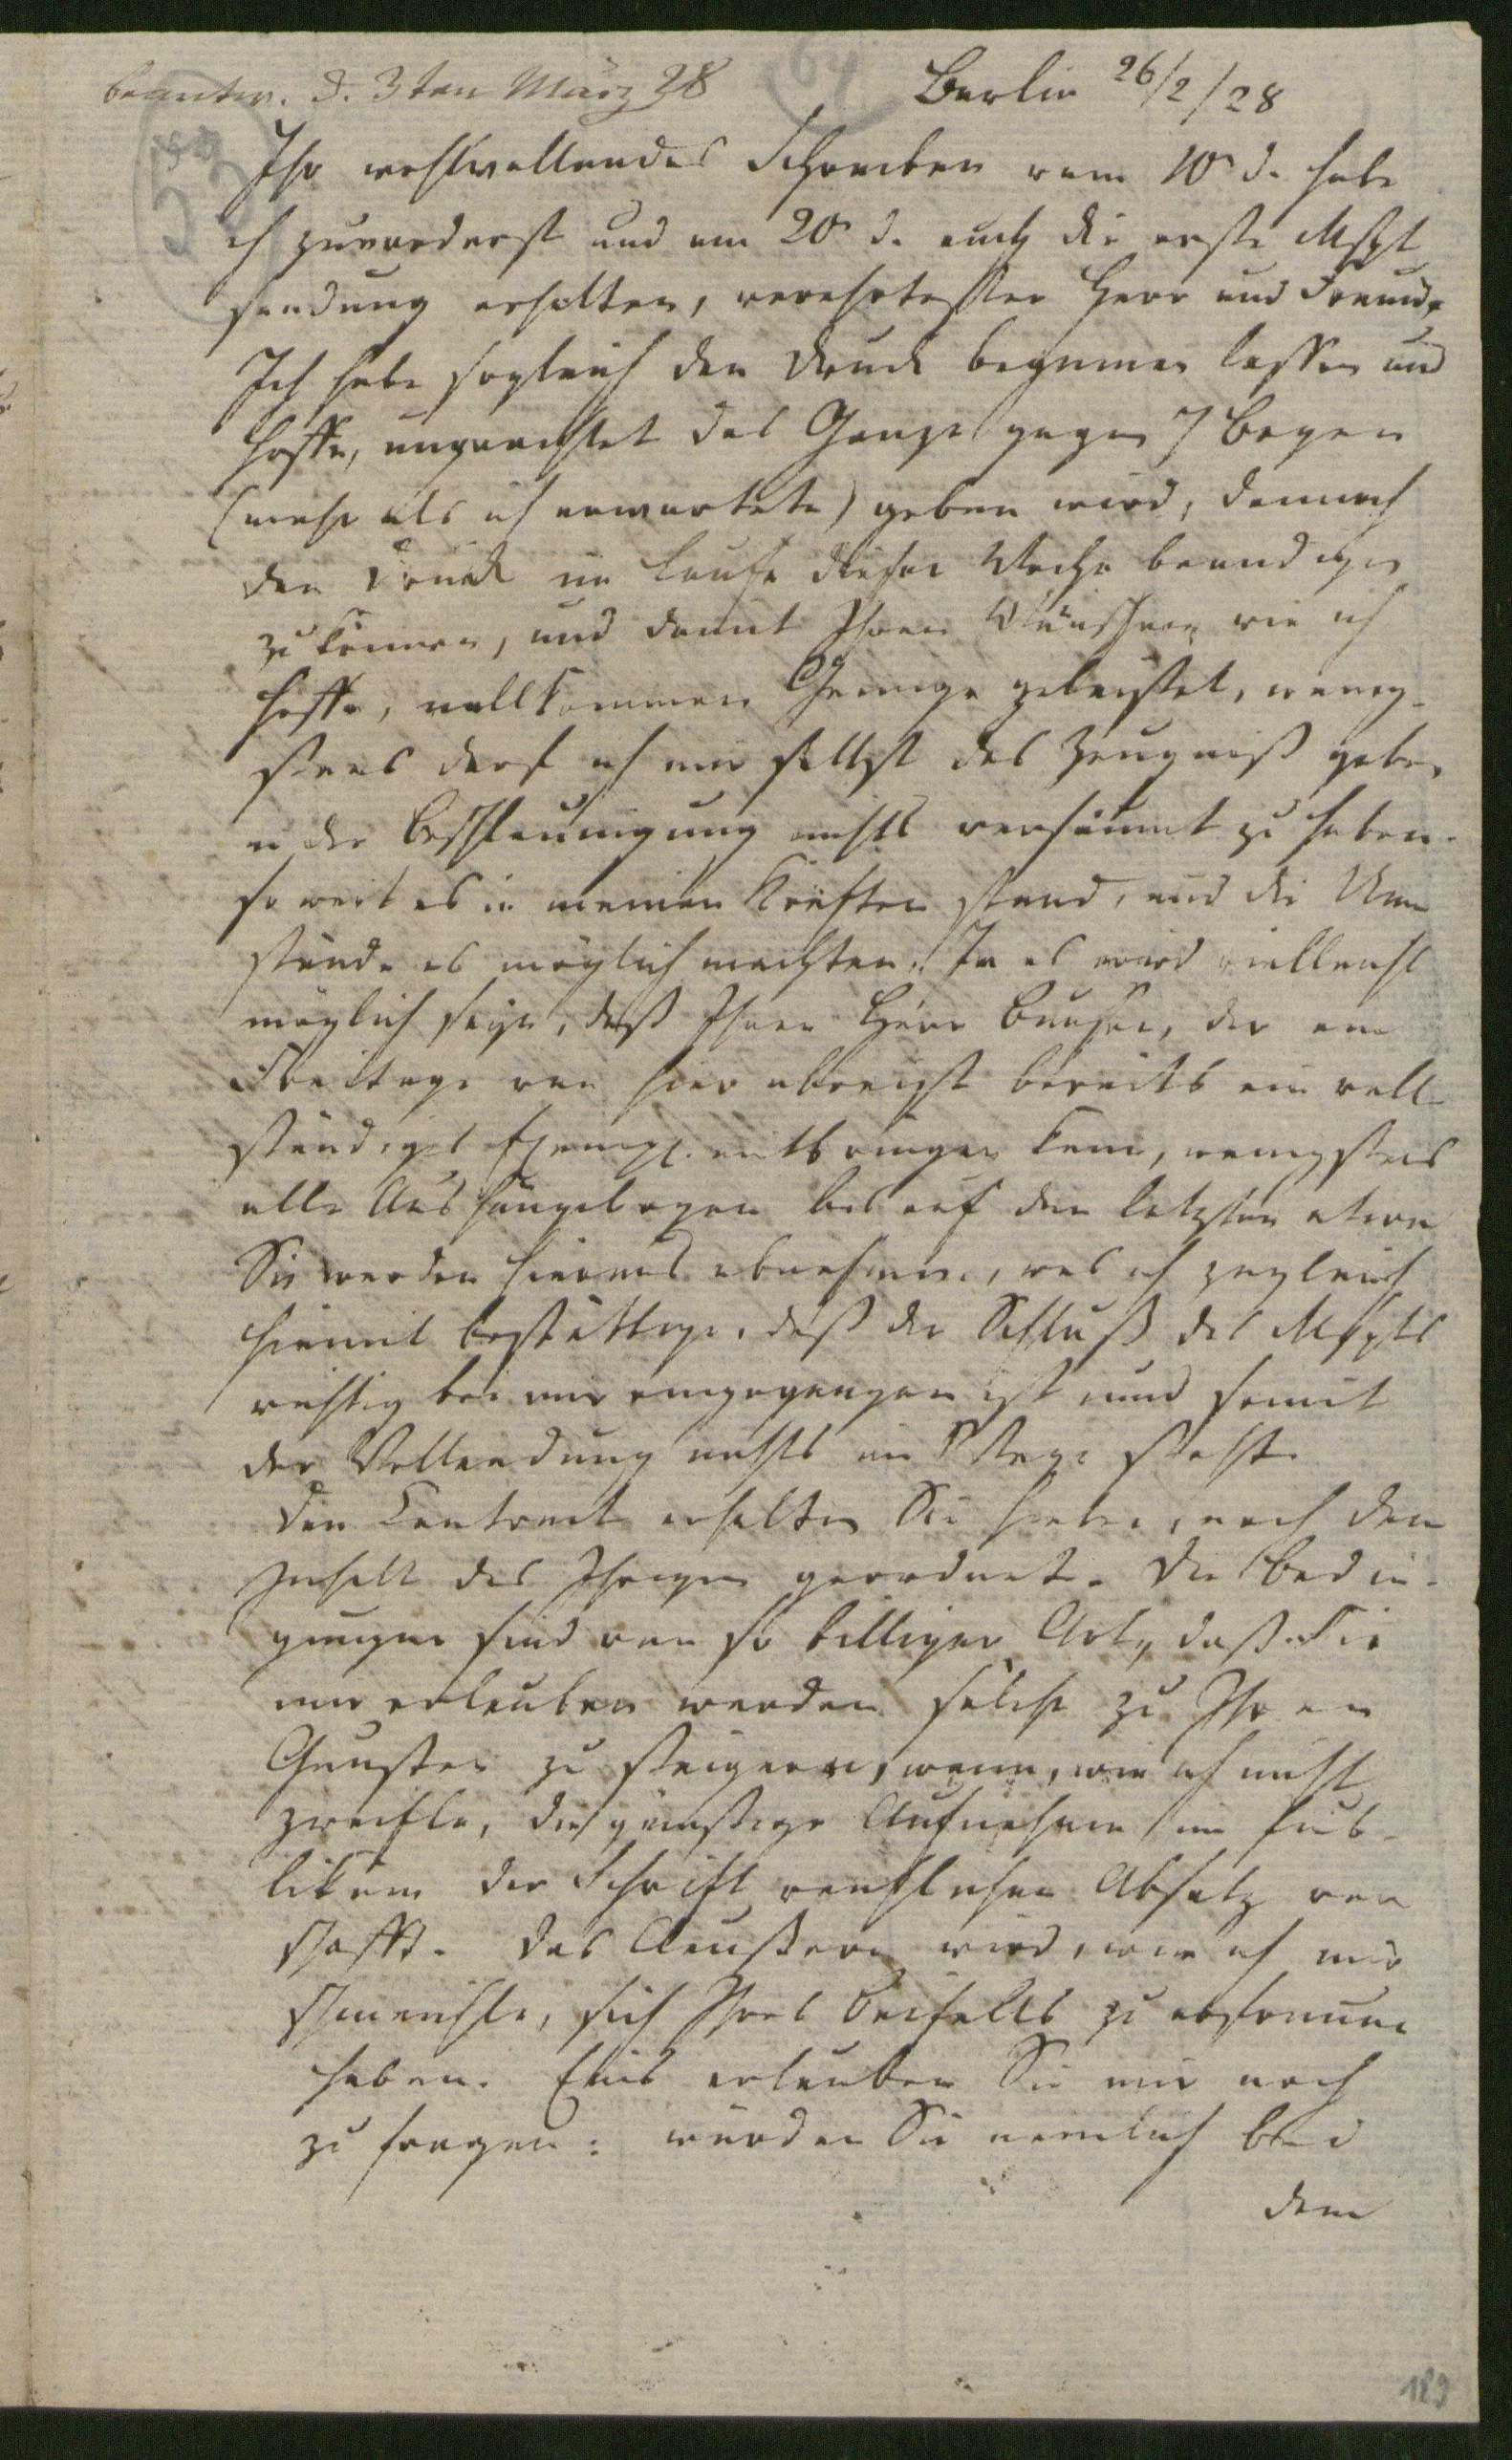 beantw. d. 3ten März 28
Berlin 26/2/28
Ihr wohlwollendes Schreiben vom 10 d. habe
ich zuvorderst und am 20 d. auch die erste Mspt
sendung erhalten, verehrtester Herr und Freund.
Ich habe sogleich den Druck beginnen lassen und
hoffe, ungeachtet das Ganze gegen 7 Bogen
(mehr als ich erwartete) geben wird, dennoch
den Druck im Laufe dieser Woche beendigen
zu können, und damit Ihren Wünschen, wie ich
hoffe, vollkommen Genüge geleistet, wenig-
stens darf ich mir selbst das Zeugniß geben
in der Beschleunigung nichts versäumt zu haben.
so weit es in meinen Kräften stand, und die Um
stände es möglich machten. Ja es wird vielleicht
möglich seyn, daß Ihnen Herr Bunsen, der am
Freitage von hier abreist bereits ein voll
ständiges Exempl. mitbringen kann, wenigstens
alle Aushängebogen bis auf den letzten etwa
Sie werden hieraus abnehmen, was ich zugleich
hiemit bestättige, daß der Schluß des Mspts
richtig bei mir eingegangen ist und somit
der Vollendung nichts im Wege steht.
Den Contract erhalten Sie hiebei, nach dem
Inhalt des Ihrigen geordnet. Die Bedin-
gungen sind von so billiger Art, daß Sie
mir erlauben werden solche zu Ihren
Gunsten zu steigern, wenn, wie ich nicht
zweifle, die günstige Aufnahme im Pub-
likum der Schrift reichlichen Absatz ver
schafft. Das Aeußere wird, wie ich mir
schmeichle, sich Ihres Beifalls zu erfreuen
haben. Eins erlauben Sie mir noch
zu fragen: würden Sie nemlich bei
dem
189